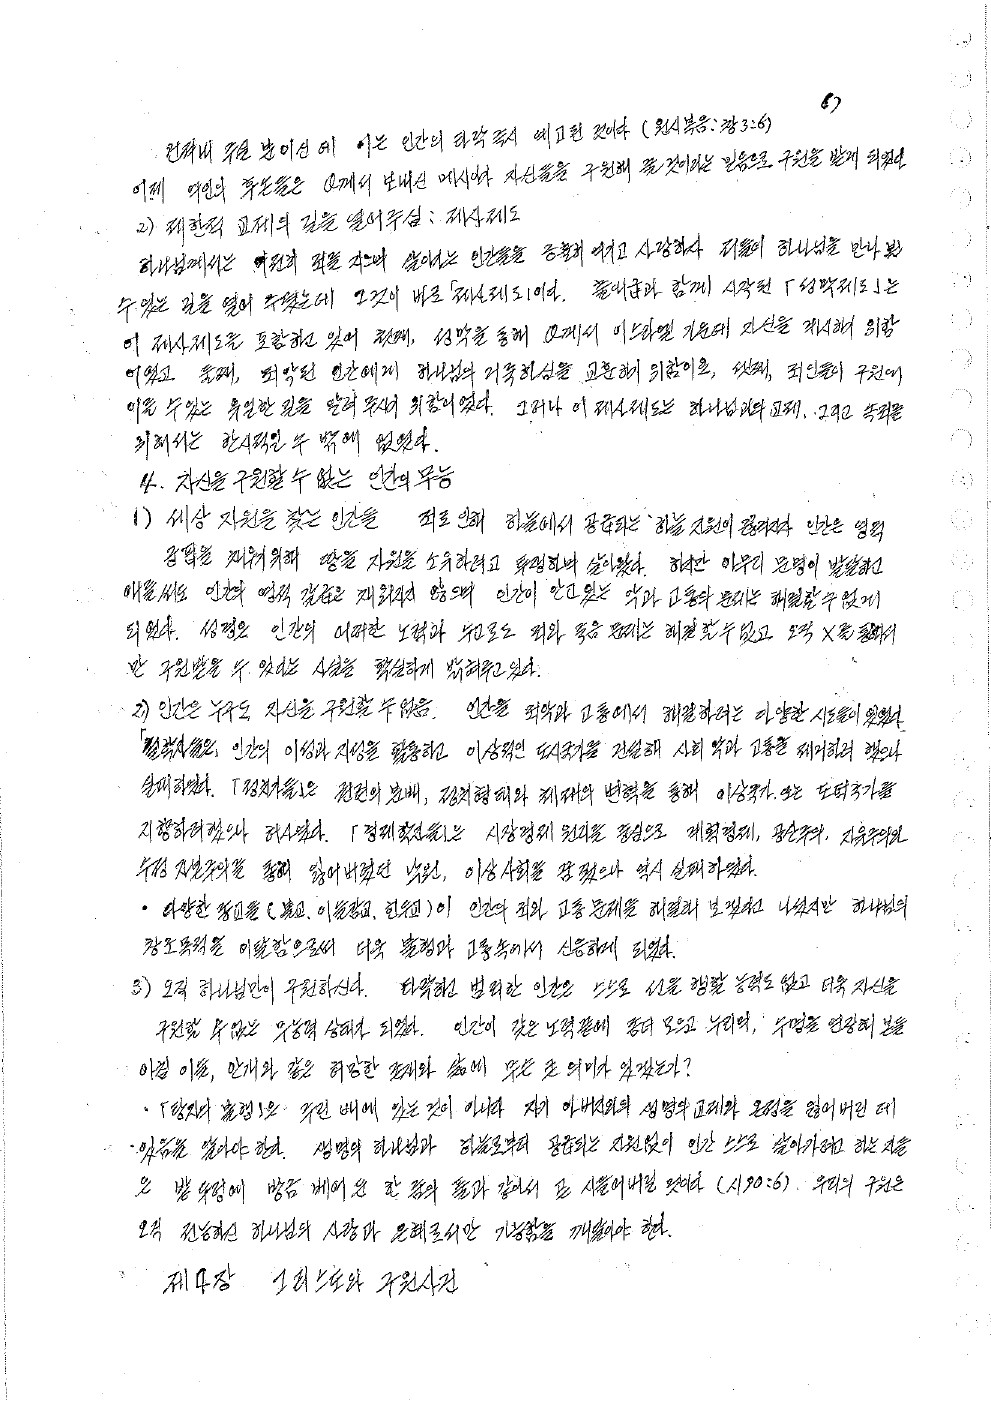 67
언약내 주실 분이신 에 이는 인간의 타락 즉시 예고된 것이다 (원시복음:창3:6)
이제 여인의 후손들은 O께서 보내신 메시야가 자신들을 구원해 줄 것이라는 믿음으로 구원을 받게 되었다
2) 제한적 교제의 길을 열어주심 : 제사제도
하나님께서는 여전히 죄를 지으며 살아가는 인간들을 긍휼히 여기고 사랑하사 저들이 하나님을 만나 뵐
수 있는 길을 열어 주셨는데 그것이 바로 「제사제도」이다. 출애굽과 함께 시작된 「성막제도」는
이 제사제도를 포함하고 있어 첫째, 성막을 통해 O께서 이스라엘 가운데 자신을 계시하기 위함
이었고 둘째, 죄악된 인간에게 하나님의 거룩하심을 교훈하기 위함이요, 셋째, 죄인들이 구원에
이를 수 있는 유일한 길을 알려 주시기 위함이었다. 그러나 이 제사제도는 하나님과의 교제, 그리고 속죄를
위해서는 한시적일 수 밖에 없었다.
4. 자신을 구원할 수 없는 인간의 무능
1) 세상 자원을 찾는 인간들 죄로 인해 하늘에서 공급되는 하늘 자원이 끊겨지자 인간은 영적
갈급을 채워기위해 땅을 자원을 소유하려고 투쟁하며 살아왔다. 하지만 아무리 문명이 발달하고
애를써도 인간의 영적 갈급은 채워지지 않으며 인간이 안고 있는 악과 고통의 문제는 해결할 수 없게
되었다. 성경은 인간의 어떠한 노력과 수고로도 죄와 죽음 문제는 해결할 수 없고 오직 X를 통해서
만 구원받을 수 있다는 사실을 확실하게 밝혀주고 있다.
2) 인간은 누구도 자신을 구원할 수 없음. 인간을 죄악과 고통에서 해결하려는 다양한 시도들이 있었다
「철학자들은」 인간의 이성과 지성을 활용하고 이상적인 도시국가를 건설해 사회 악과 고통을 제거하려 했으나
실패하였다. 「정치가들」은 권력의 분배, 정치형태와 체제의 변혁을 통해 이상국가 또는 도덕국가를
지향하려했으나 허사였다. 「경제학자들」는 시장경제 원리를 중심으로 계획경제, 공산주의, 자유주의와
수정 자본주의를 통해 잃어버렸던 낙원, 이상사회를 꿈꿨으나 역시 실패하였다.
• 다양한 종교들 (불교, 이슬람교, 힌두교)이 인간의 죄와 고통 문제를 해결해 보겠다고 나섰지만 하나님의
창조목적을 이탈함으로써 더욱 불행과 고통속에서 신음하게 되었다.
3) 오직 하나님만이 구원하신다. 타락하고 범죄한 인간은 스스로 선을 행할 능력도 없고 더욱 자신을
구원할 수 없는 무능력 상태가 되었다. 인간이 갖은 노력끝에 좀더 모으고 누리며, 수명을 연장해 본들
아침 이슬, 안개와 같은 허망한 존재와 삶에 무슨 큰 의미가 있겠는가?
• 「탕자의 불행」은 주린 배에 있는 것이 아니라 자기 아버지와의 생명의 교제와 은정을 잃어버린 데
있음을 알아야 한다. 생명의 하나님과 하늘로부터 공급되는 자원없이 인간 스스로 살아가려고 하는 자들
은 밭 두렁에 방금 베어 논 한 줌의 풀과 같아서 곧 시들어버릴 것이다 (시90:6). 우리의 구원은
오직 전능하신 하나님의 사랑과 은혜로서만 가능함을 깨달아야 한다.
제4장 그리스도와 구원사건